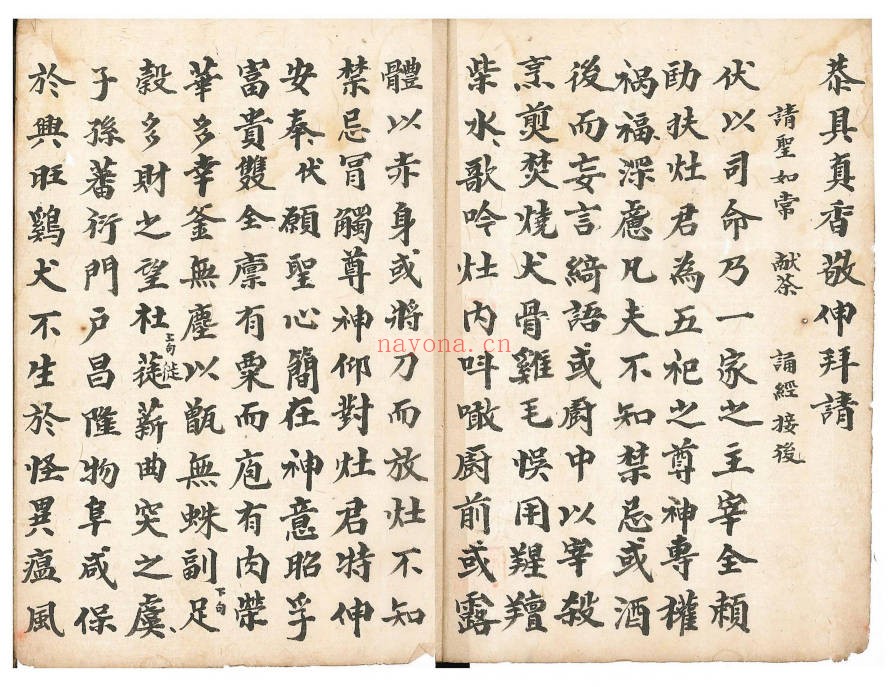 恭具真香敬伸拜請
請聖如常 献茶 誦經接後
伏以司命乃一家之主宰全頼
助扶灶君為五祀之尊神專權
禍福深慮凡夫不知禁忌或酒
後而妄言綺語或厨中以宰殺
烹煎焚燒犬骨雞毛悮用羥羶
柴水歌吟灶内呌噉厨前或露
體以赤身或将刀而放灶不知
禁忌冒觸尊神仰對灶君特伸
安奉伏願聖心簡在神意昭孚
富貴雙全廪有粟而庖有肉榮
華多幸釜無塵以甑無蛛副足下句
穀多財之望杜上句徙薪曲突之虞
子孫蕃衍門户昌隆物阜咸保
於興旺鷄犬不生於怪異瘟風
nayona.cn